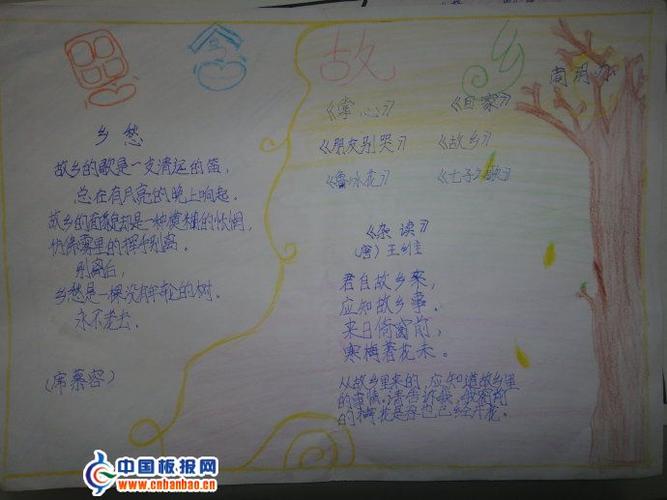 思念故乡
周月
乡愁
故乡的歌是一支清远的笛,
总在有月亮的晚上响起.
故乡的面貌却是一种模糊的怅惘,
仿佛雾里的挥手别离
别离后,
乡愁是一棵没有年轮的树.
永不老去.
(席慕容)
《掌心》 《回家》
《朋友别哭》 《故乡》
《鲁冰花》 《七子之歌》
《杂读》
(唐) 王
君自故乡来,
应知故乡事.
来日倚窗前,
寒梅著花未。
从故乡里来的,应知道故乡里
的事情.请告诉我,我窗前
的梅花是否也已经开花。
中国板报网
www.cnbanbao.cn